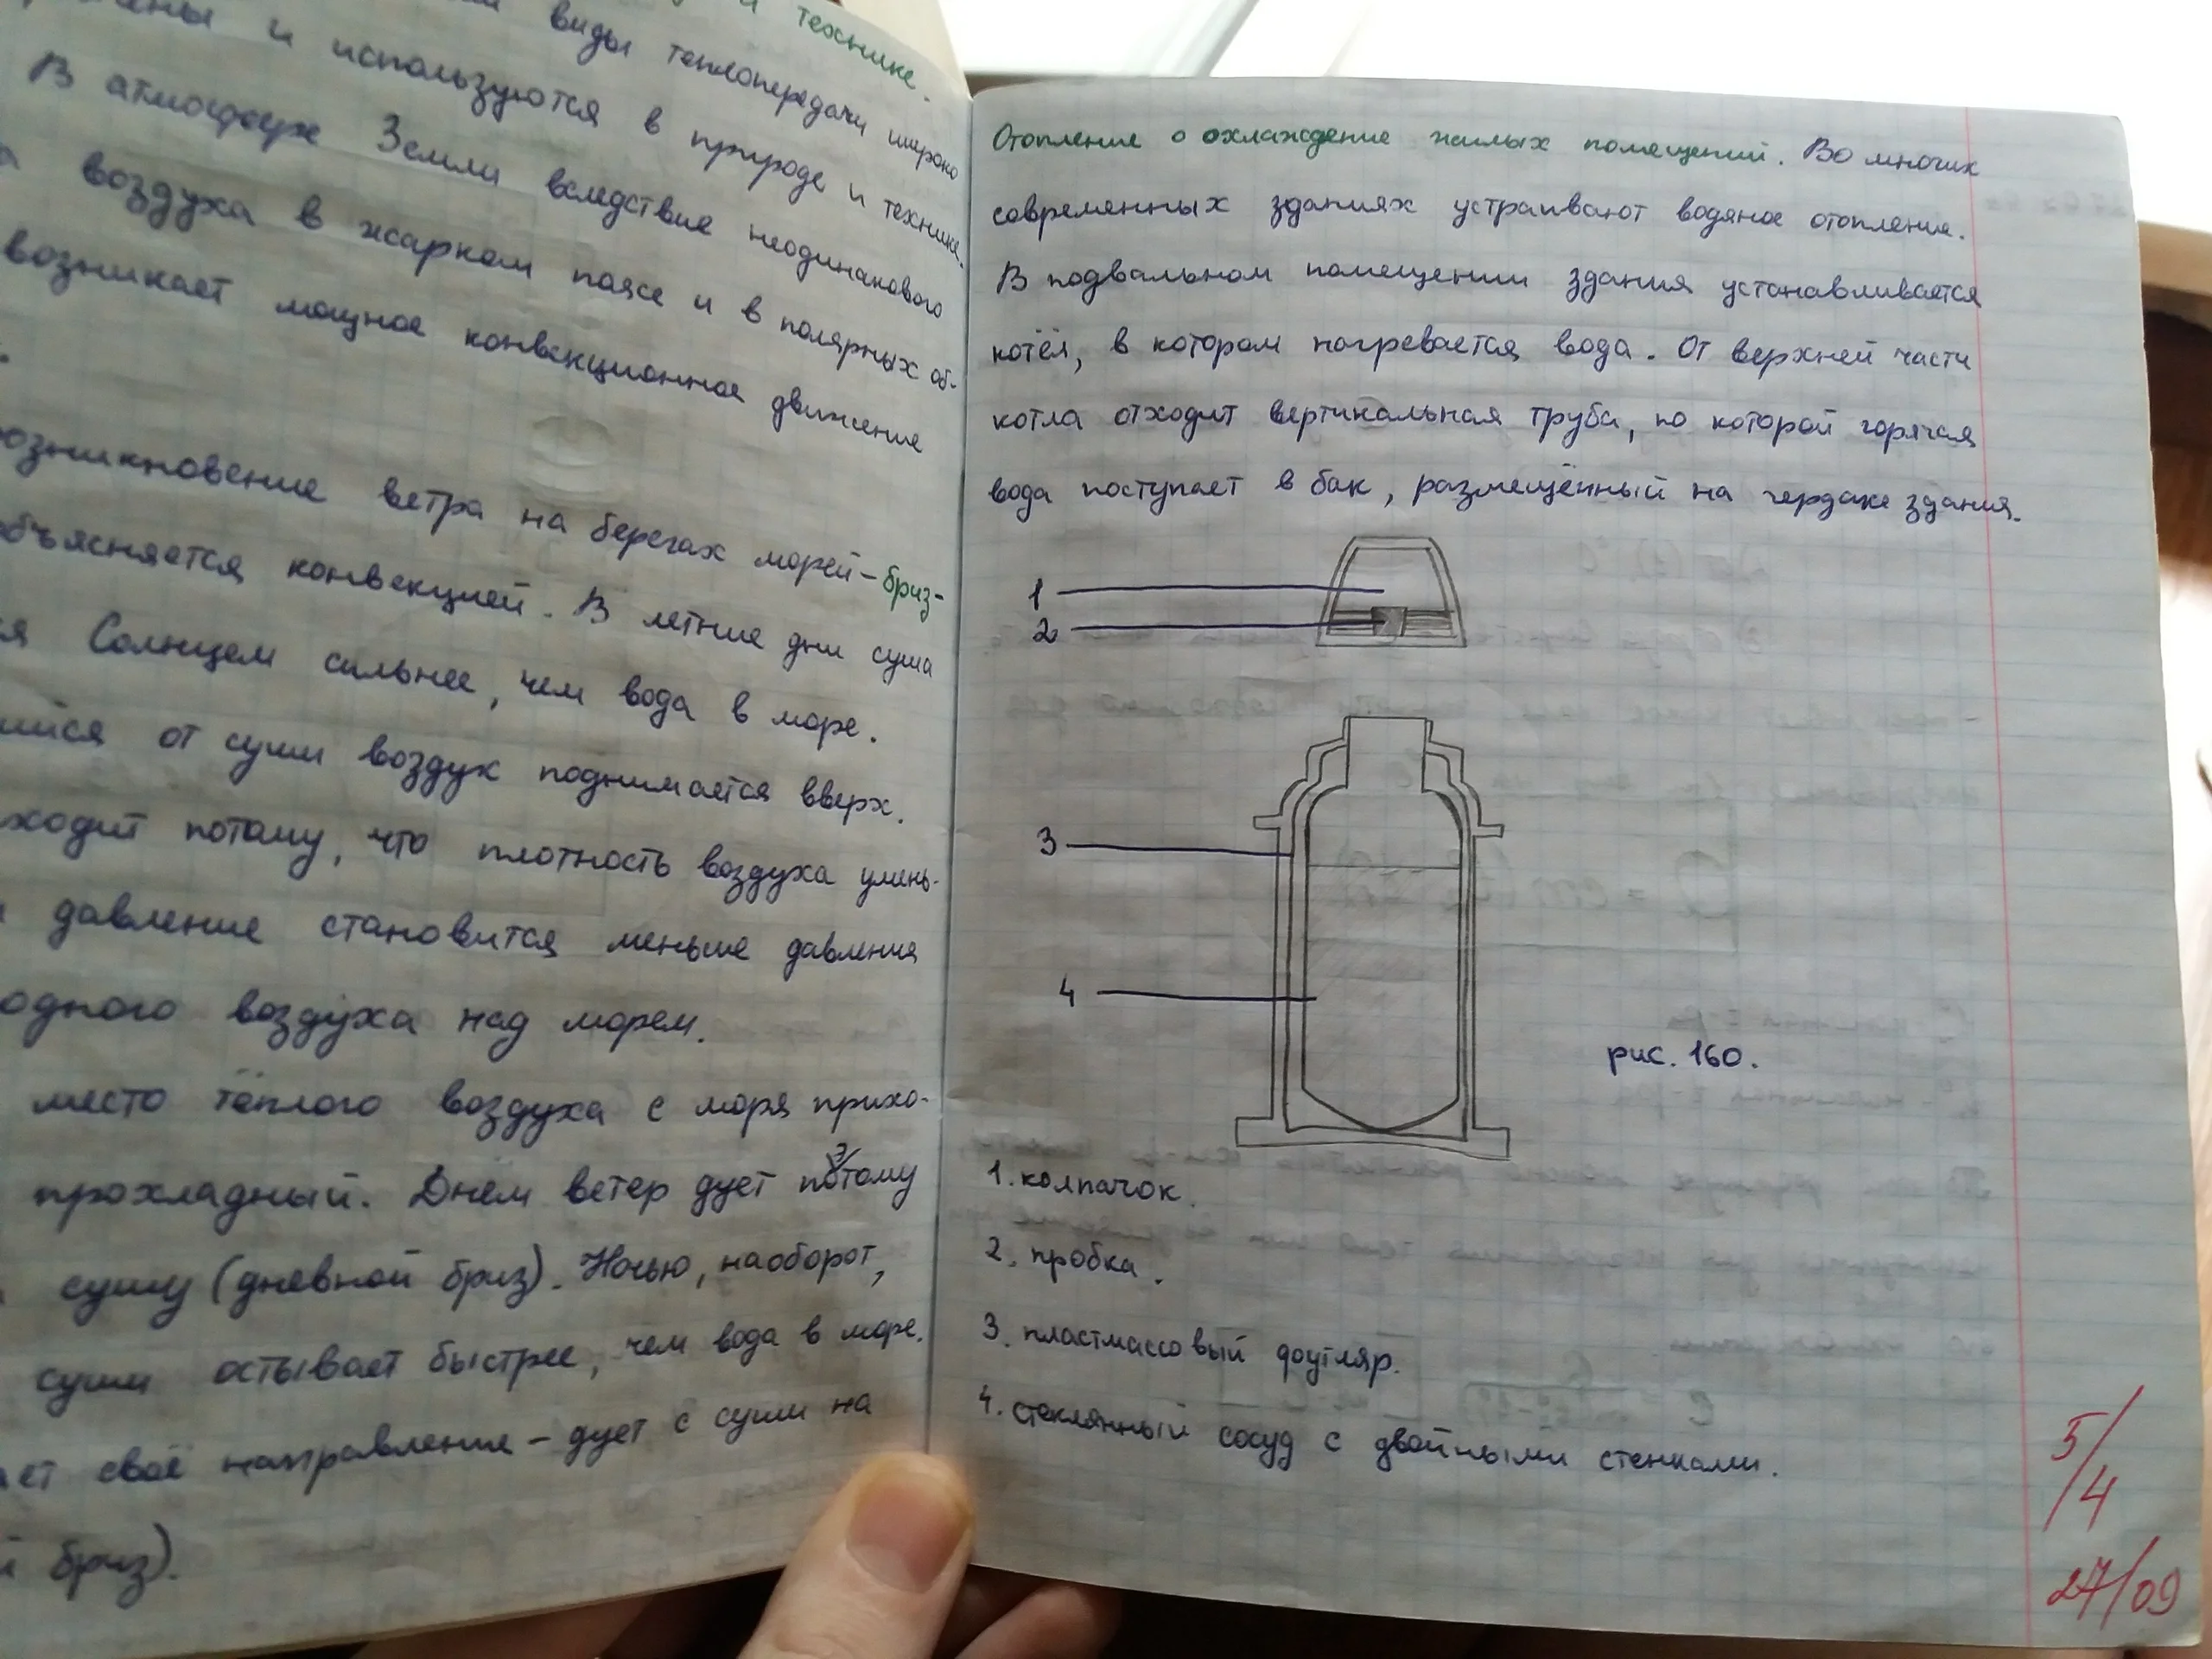 и технике.
виды теплопередачи широко
и используются в природе и технике.
В атмосфере Земли вследствие неодинакового
воздуха в жарком поясе и в полярных об-
возникает мощное конвекционное движение
возникновение ветра на берегах морей-бриз-
объясняется конвекцией. В летние дни суша
ся Солнцем сильнее, чем вода в море.
шийся от суши воздух поднимается вверх.
ходит потому, что плотность воздуха умень-
давление становится меньше давления
одного воздуха над морем.
место тёплого воздуха с моря прихо-
прохладный. Днём ветер дует поэтому
сушу (дневной бриз). Ночью, наоборот,
суши остывает быстрее, чем вода в море.
ает своё направление – дует с суши на
й бриз).
Отопление о охлаждение жилых помещений. Во многих
современных зданиях устраивают водяное отопление.
В подвальном помещении здания устанавливается
котёл, в котором нагревается вода. От верхней части
котла отходит вертикальная труба, по которой горячая
вода поступает в бак, размещённый на чердаке здания.
1
2
3
4
рис. 160.
1. колпачок.
2. пробка.
3. пластмассовый фоутляр.
4. стеклянный сосуд с двойными стенками.
5/4
27/09